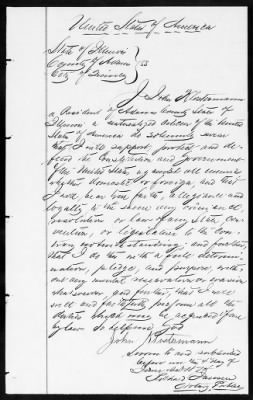 United States of America
State of Illinois
County of Adams } SS
City of Quincy
I John Klostermann
a Resident of Adams County State of
Illinois, a naturalized Citizen of the United
States of America do solemnly swear
that I will support, protect and de
fend the Constitution and government
of the United States, against all enemies
whether domestic or foreign, and that
I will bear true faith, allegiance and
loyalty to the same, any
resolution or law of any State con
vention, or legislature to the con
trary notwithstanding; and further,
that I do this with a full determi
nation, pledge, and purpose, with
out any mental reservation or evasion
whatsoever, and further, that I will
well and faithfully perform all the
duties which may be required of me
by law. So help me God
John Klostermann
Sworn to and subscribed
before me this day of
June
Notary Public